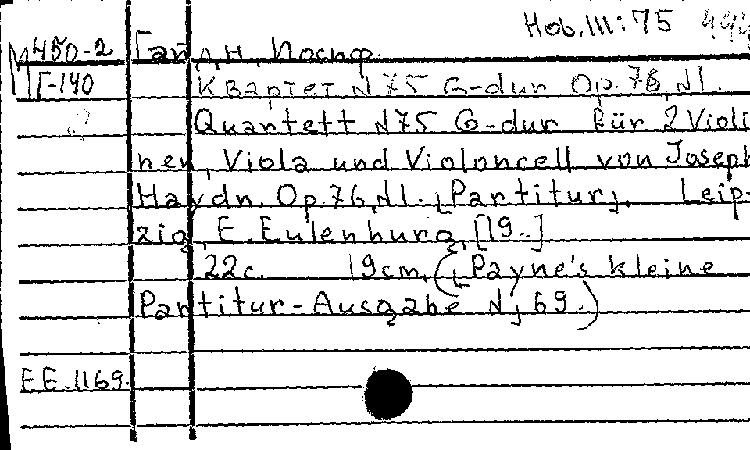 Hob.III:75 494
М450-2 Гайдн, Йосиф.
Г-140 Квартет N75 G-dur Op.76, N1.
Quartett N75 G-dur für 2 Violi
nen, Viola und Violoncell von Joseph
Haydn. Op.76, N1. [Partitur]. Leip-
zig, E. Eulenburg, [19..]
22c. 19cm. (Payne's kleine
Partitur-Ausgabe N 69.)
E.E. 1169.